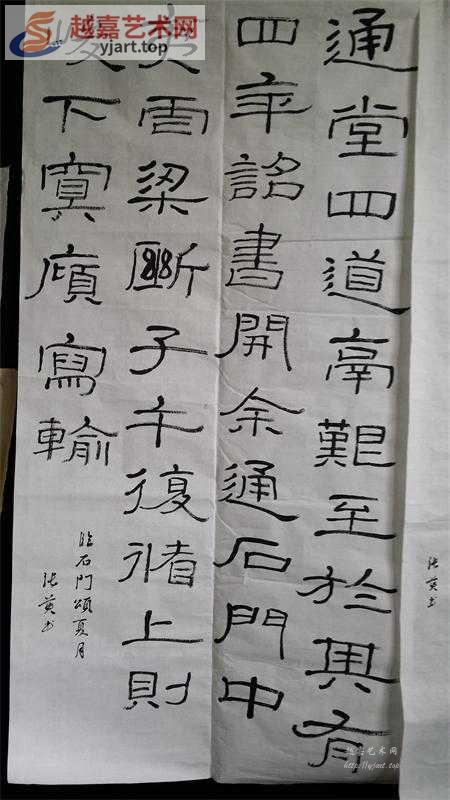 越嘉艺术网
yjart.top
通堂四道鬲艱至於其有
四年詔書開余通石門中
梁斷子午復循上則
下冥傾寫輸
临石门頌夏月
张黄书
张黄书
越嘉艺术网
http://yjart.top